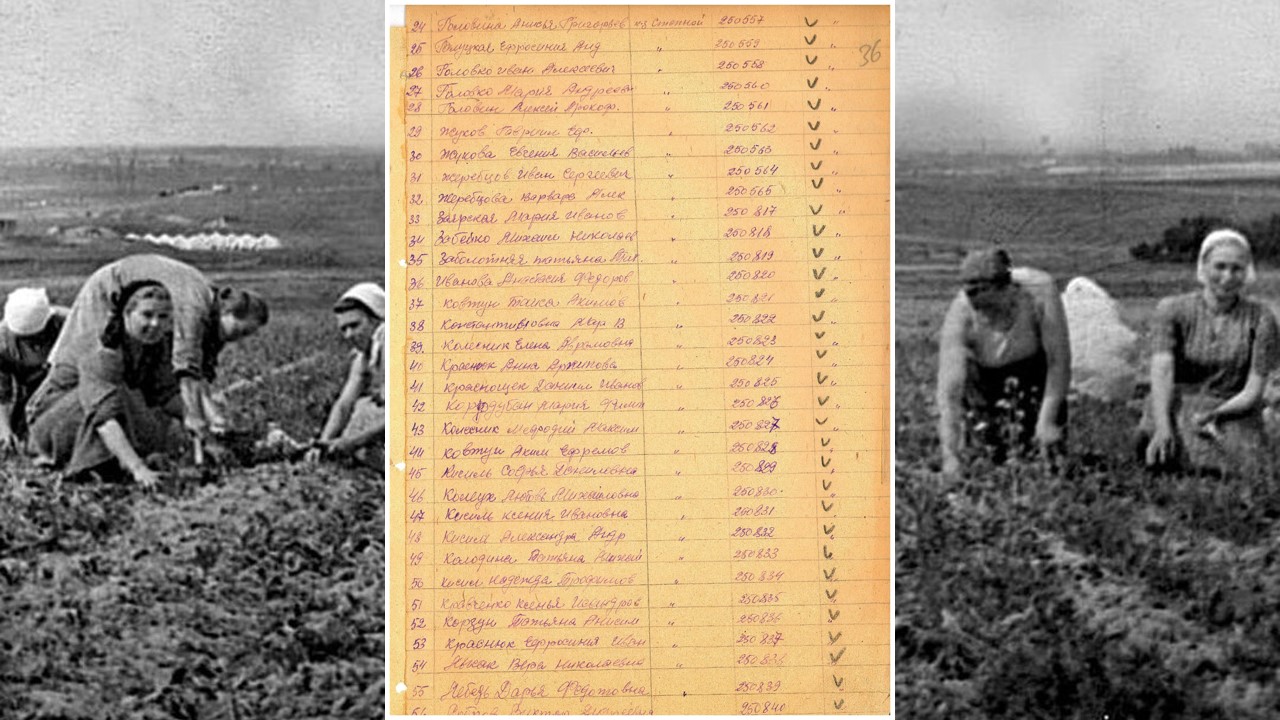 24 Головина Анисья Григорьев из Степной 250557 "
25 Ефросиния Анд " 250559 "
36
26 Головко Иван Алексеевич " 250558 "
27 Головко Мария Андреевн " 250560 "
28 Головин Алексей Прокоф. " 250561 "
29 Жуков Гавриил Ефр. " 250562
30 Жукова Евгения Васильев " 250563 "
31 Жеребцов Иван Сергеевич " 250564
32 Жеребцова Варвара Алек 250565 "
33 Заярская Мария Иванов " 250817 "
34 Забейко Михаил Николаев " 250818
35 Заболотняя татьяна " 250819 "
36 Иванова Анастасия Федоров " 250820 "
37 Ковтун Акимов " 250821 "
38 Константиновна В " 250822 "
39. Колесник Елена Абрамовна " 250823 "
40 Анна Архипова " 250824 "
41 Краснощек Иванов " 250825 "
42 Мария " 250826 "
43 Колесник Мефодий Максим " 250827
44 Ковтун Аким Ефремов " 250828 "
45 Кисиль Софья " 250829
46 Любовь Михайловна " 250830 "
47 Кисиль Ксения Ивановна " 250831
48 Кисиль Александра Андр " 250832
49 Колодина Татьяна " 250833
50 Кисиль Надежда Трофимов " 250834
51 Кравченко Ксенья " 250835 "
52 Корзун Татьяна Анисим " 250836
53 Краснюк Ефросиния Иван " 250837
54 Вера Николаевна " 250838
55 Лебедь Дарья Федотовна " 250839 "
56 250840